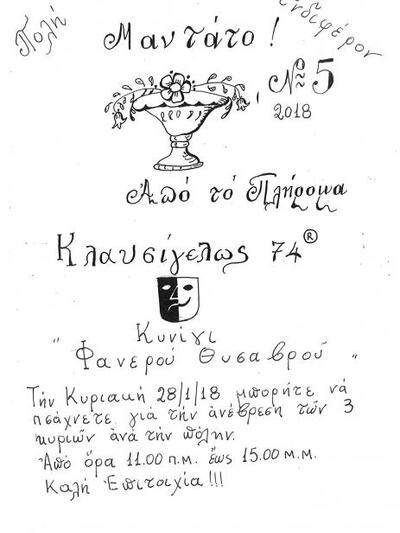 Πολή
ἐνδιφέρον
Μαντάτο!
Nº 5
2018
Ἀπό τό Πλήρομα
Κλαυσίγελως 74®
Κυνίγι
"Φανερού Θυσαβρού"
Τήν Κυριακή 28/1/18 μπορήτε νά
πσάχνετε γιά τήν ἀνέβρεση τῶν 3
κυριῶν ἀνά τήν πόλην.
Ἀπό ὅρα 11.00 π.μ. ἕως 15.00 μ.μ.
Καλή Ἐπιτοιχία!!!